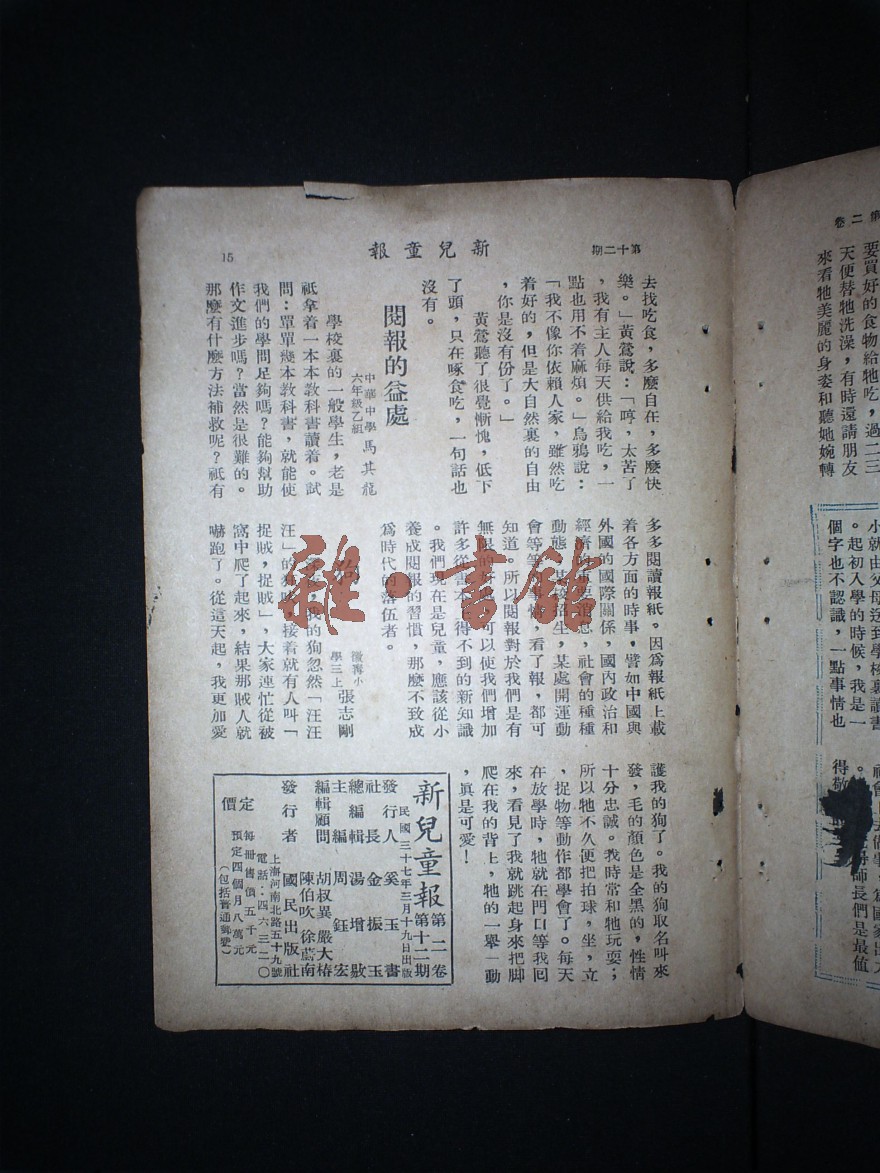 第十二期
新兒童報
15
去找吃食，多麼自在，多麼快
樂。」黃鶯說：「哼，太苦了
，我有主人每天供給我吃，一
點也用不着麻煩。」烏鴉說：
「我不像你依賴人家，雖然吃
着好的，但是大自然裏的自由
，你是沒有份了。」
黃鶯聽了很覺慚愧，低下
了頭，只在啄食吃，一句話也
沒有。
閱報的益處
中華中學
六年級乙組
馬其龍
學校裏的一般學生，老是
祇拿着一本本教科書讀着。試
問：單單幾本教科書，就能使
我們的學問足夠嗎？能夠幫助
作文進步嗎？當然是很難的。
那麼有什麼方法補救呢？祇有
多多閱讀報紙。因爲報紙上載
着各方面的時事，譬如中國與
外國的國際關係，國內政治和
經濟的重要消息，社會的種種
動態，某校招生，某處開運動
會等等的事情，看了報，都可
知道。所以閱報對於我們是有
無限的好處，可以使我們增加
許多從書本上得不到的新知識
。我們現在是兒童，應該從小
養成閱報的習慣，那麼不致成
爲時代的落伍者。
學三上
張志剛
我的狗忽然「汪汪
汪」的狗吠，接着就有人叫「
捉賊，捉賊」，大家連忙從被
窩中爬了起來，結果那賊人就
嚇跑了。從這天起，我更加愛
護我的狗了。我的狗取名叫來
發，毛的顏色是全黑的，性情
十分忠誠。我時常和牠玩耍；
所以牠不久便把拍球，坐，立
，捉物等動作都學會了。每天
在放學時，牠就在門口等我回
來，看見了我就跳起身來把脚
爬在我的背上，牠的一舉一動
，真是可愛！
新兒童報
第二卷
第十二期
民國三十七年三月十九日出版
發行人　奚玉書
社長　金振玉
總編輯　湯增敭
主編　周鈺宏
編輯顧問　胡叔異　嚴大椿
陳伯吹　徐蔚南
發行者　國民出版社
上海河南北路五十九號
電話：四六三二〇
定價
每冊售價五千元
預定四個月八萬元
（包括普通郵費）
二卷
要買好的食物給牠吃，過二三
天便替牠洗澡，有時還請朋友
來看牠美麗的身姿和聽她婉轉
小就由父母送到學校裏讀書
。起初入學的時候，我是一
個字也不認識，一點事情也
雜·書館